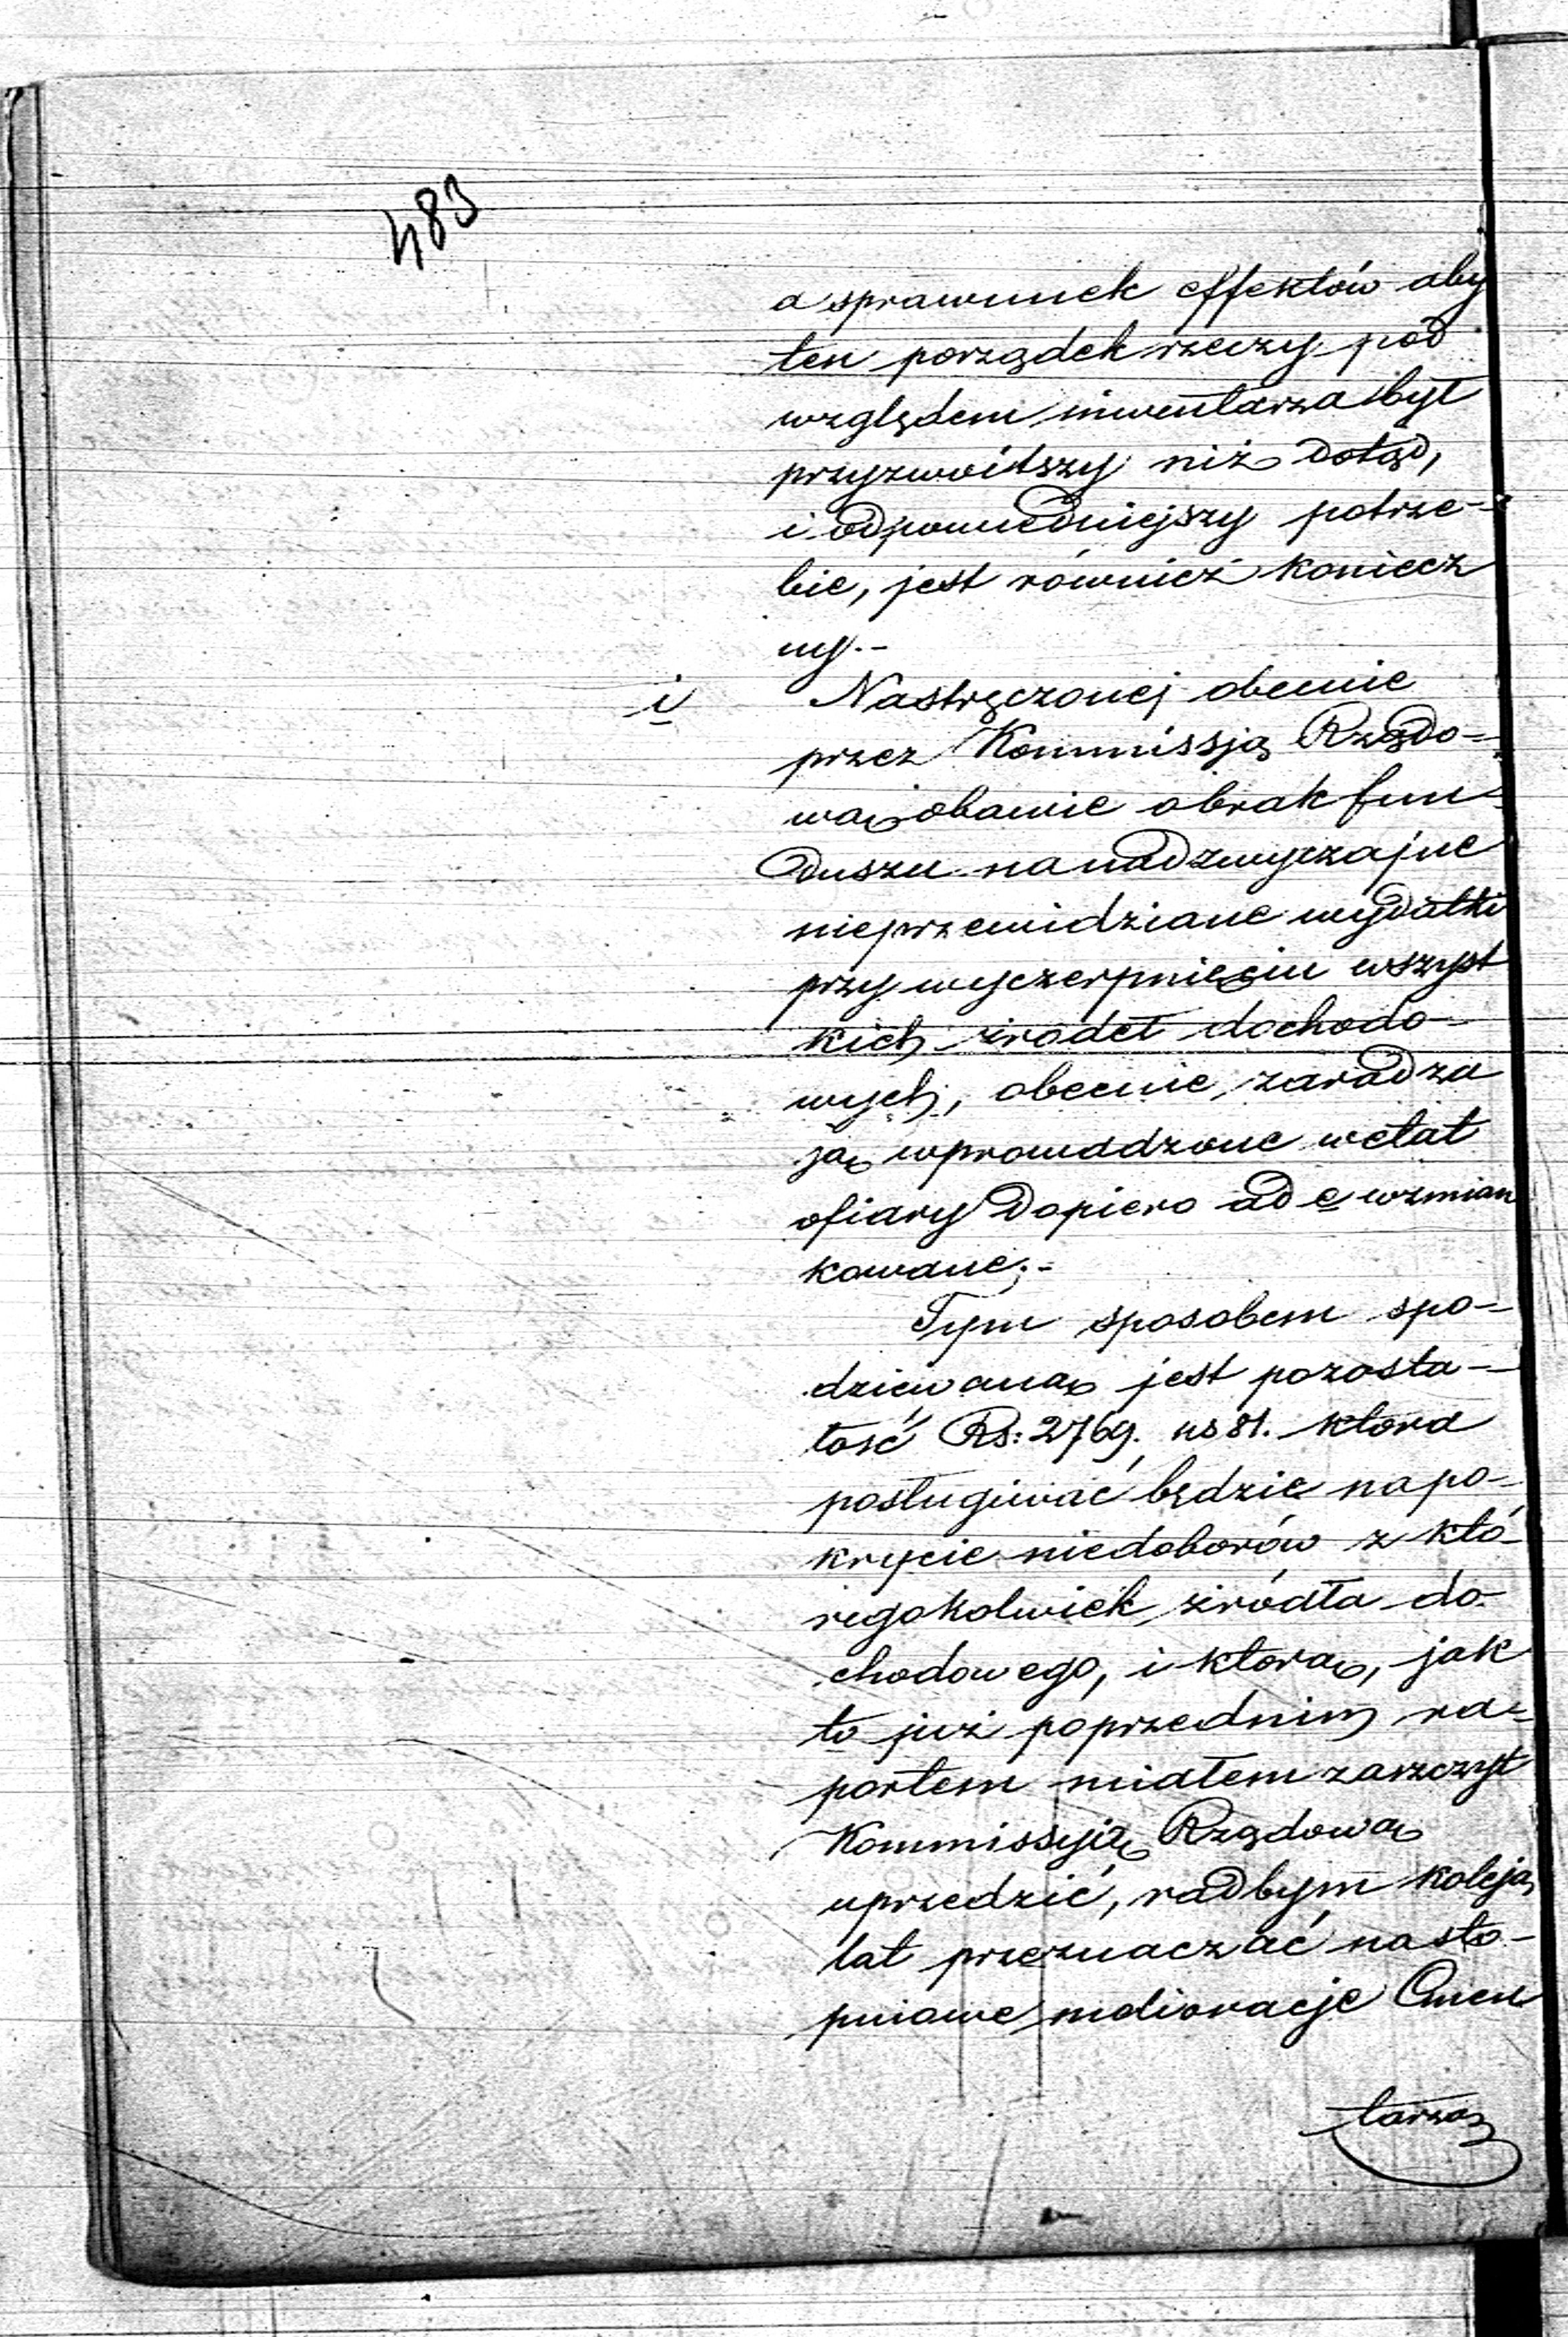 483
a sprawunek effektów aby
ten porządek rzeczy pod
względem inwentarza był
przyzwoitszy niż dotąd,
i odpowiedniejszy potrze-
bie, jest również koniecz
ny.-
i Nastręczonej obecnie
przez Kommissją Rządo-
wą obawie o brak fun-
duszu na nadzwyczajne
nieprzewidziane wydatki
przy wyczerpnięciu wszyst
kich źrodeł dochodo-
wych, obecnie, zaradza
ją wprowadzone w etat
ofiary dopiero ad e wzmian
kowane.-
Tym sposobem spo-
dziewaną jest pozosta-
łość Rs: 2769. ks 81. ktora
posługiwać będzie na po-
krycie niedoborów z któ-
regokolwiek źródła do-
chodowego, i ktorą, jak
to już poprzednim ra-
portem miałem zaszczyt
Kommissyią Rządową
uprzedzić, radbym koleją
lat przeznaczać na sto-
pniowe melioracje Cmen
tarza